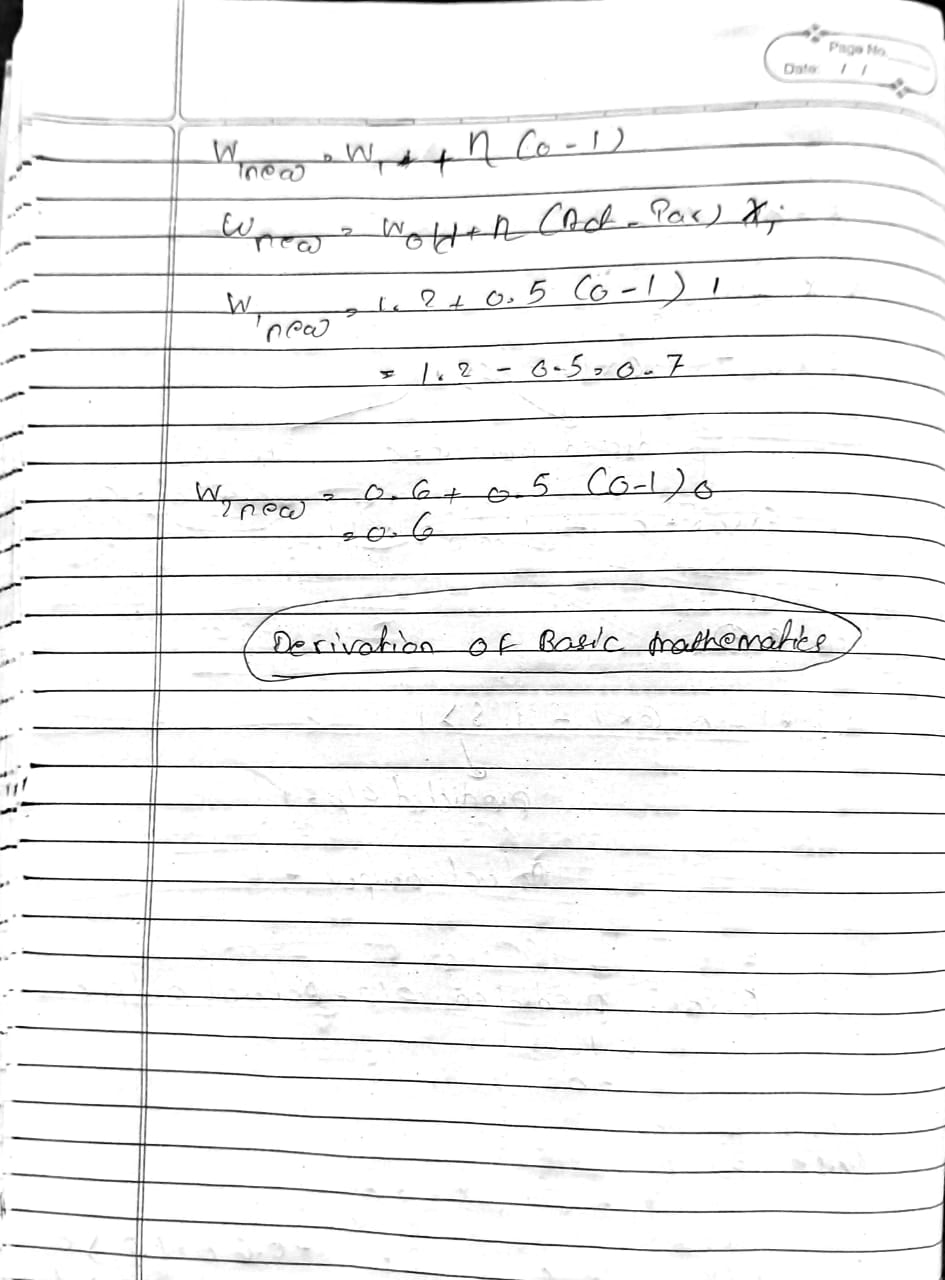 Page No.
Date: / /
W1new = W1 + n (0-1)
Wnew = Wold + n (Act - Par) xi
W1new = 1.2 + 0.5 (0-1) 1
= 1.2 - 0.5 = 0.7
W2new = 0.6 + 0.5 (0-1) 0
= 0.6
Derivation of Basic mathematics